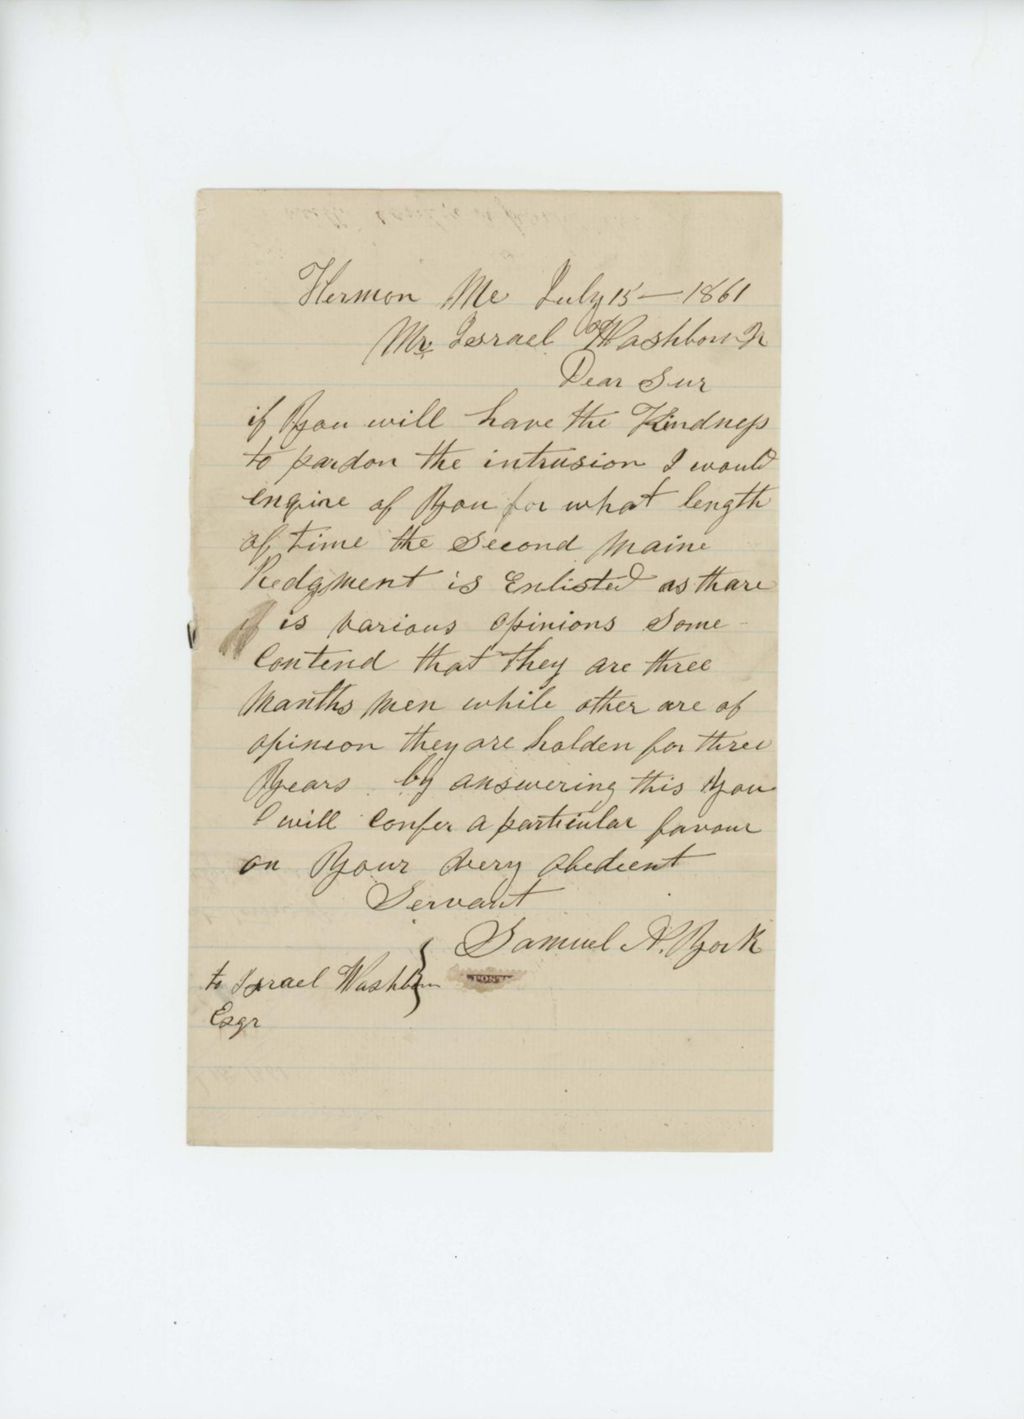 Hermon Me July 15 — 1861
Mr. Israel Washborn Jr
Dear Sur
if You will have the Kindness
to pardon the intrusion I would
enqire of You for what length
of time the Second Maine
Redgment is Enlisted as thare
is various opinions Some
Contend that they are three
Manths Men while other are of
opineon they are halden for three
Years by answering this You
will Confer a particular favour
on Your very obedient
Servant
Samuel A. York
to Israel Washborn
Esqr